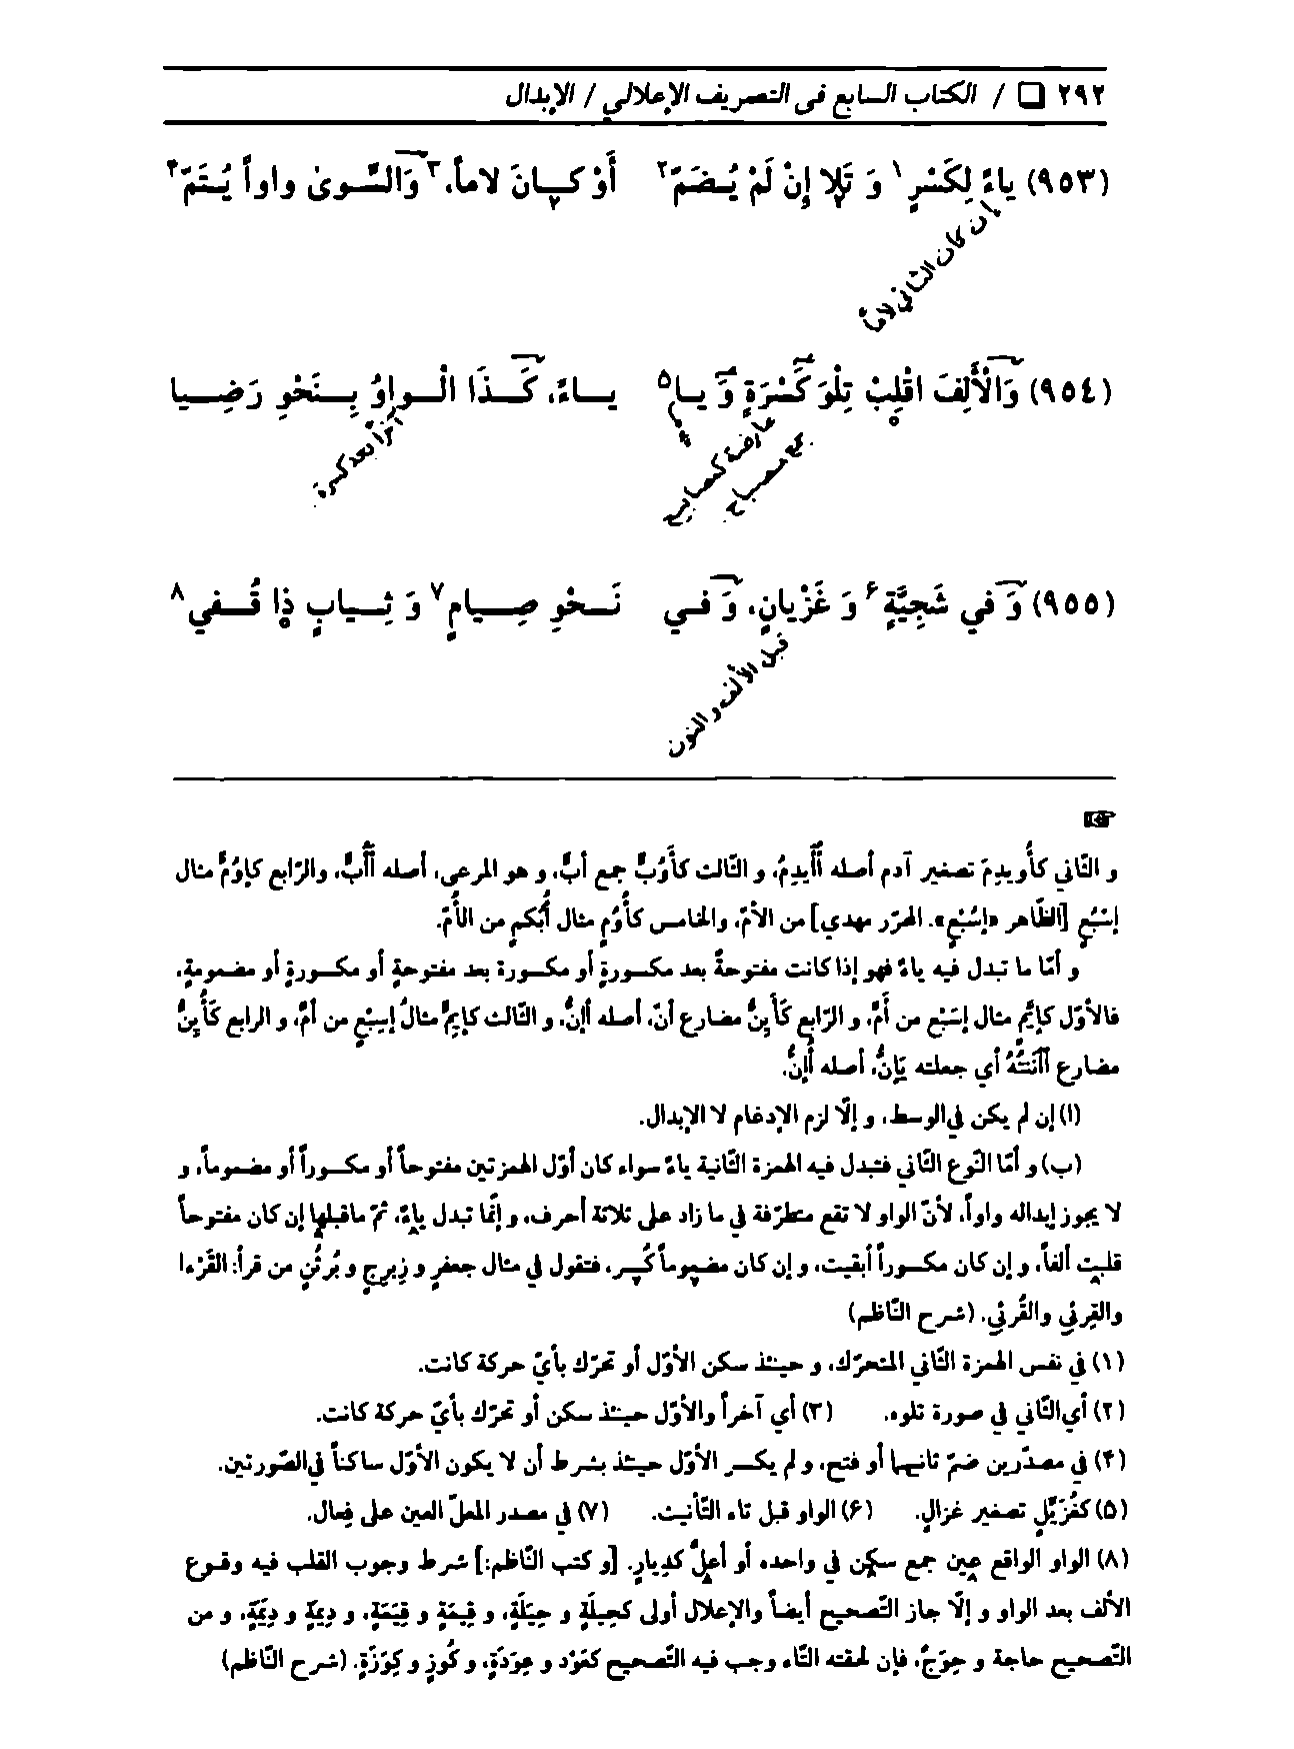 ٢٩٢ ❏ / الكتاب السابع في التصريف الإعلالي / الإبدال
(٩٥٣) ياءً لِكَسْرٍ١ وَ تَلا إِنْ لَمْ يُضَمّ٢ أَوْ كـانَ لاماً،٣ وَالسِّوىٰ واواً يُتَمّ۴
إن كان الثاني لاماً
(٩٥٤) وَالْأَلِفَ اقْلِبْ تِلْوَ كَسْرَةٍ وَ يـا۵ يــاءً، كَـذَا الْـواوُ بِـنَحْوِ رَضِـيا
عارضة كمصابيح
جمع مصباح.
آخراً بعد كسرة.
(٩٥٥) وَ في شَجِيَّةٍ۶ وَ غَزْيانٍ، وَ فـي نَـحْوِ صِـيامٍ٧ وَ ثِـيابٍ ذٰا قُـفي٨
قبل الألف و النون
☞
و الثّاني كأُويدِمَ تصغير آدم أصله أُأَيدِمُ، و الثّالث كأَوُبٍّ جمع أبّ، و هو المرعى، أصله أَأْبُبٌ، والرّابع كإوُمٍّ مثال
إِسْبُعٍ [الظّاهر «إِسُبْعٍ». المحرّر مهدي] من الأمّ، والخامس كأُوُمٍ مثال أُبُكمٍ من الأُمّ.
و أمّا ما تبدل فيه ياءً فهو إذا كانت مفتوحةً بعد مكسورةٍ أو مكسورة بعد مفتوحةٍ أو مكسورةٍ أو مضمومةٍ،
فالأوّل كإيَمٍّ مثال إِسَبْع من أَمَّ، و الرّابع كَأَيِنُّ مضارع أنّ، أصله أإنُّ، و الثّالث كإيِمٍّ مثالُ إِسِبْعٍ من أمَّ، و الرابع كَأُيِنُّ
مضارع أأنَنْتُهُ أي جعلته يَإنُّ، أصله أُإنُّ.
(ا) إن لم يكن في الوسط، و إلّا لزم الإدغام لا الإبدال.
(ب) و أمّا النّوع الثّاني فتبدل فيه الهمزة الثّانية ياءً سواء كان أوّل الهمزتين مفتوحاً أو مكسوراً أو مضموماً، و
لا يجوز إبداله واواً، لأنّ الواو لا تقع متطرّفة في ما زاد على ثلاثة أحرف، و إنّما تبدل ياءً، ثمّ ماقبلها إن كان مفتوحاً
قلبت ألفاً، و إن كان مكسوراً أبقيت، و إن كان مضموماً كُسِر، فتقول في مثال جعفرٍ و زِبرِجٍ و بُرثُنٍ من قرأ: القَرْءا
والقِرئي والقُرئي. (شرح النّاظم)
(١) في نفس الهمزة الثّاني المتحرّك، و حينئذ سكن الأوّل أو تحرّك بأيّ حركة كانت.
(٢) أي الثّاني في صورة تلوه.      (٣) أي آخراً والأوّل حينئذ سكن أو تحرّك بأيّ حركة كانت.
(۴) في مصدّرين ضمّ ثانيهما أو فتح، و لم يكسر الأوّل حينئذ بشرط أن لا يكون الأوّل ساكناً في الصّورتين.
(۵) كغُزَيِّلٍ تصغير غزالٍ.      (۶) الواو قبل تاء التّأنيث.      (٧) في مصدر المعلّ العين على فِعال.
(٨) الواو الواقع عين جمع سكن في واحده أو أعلّ كديارٍ. [و كتب النّاظم:] شرط وجوب القلب فيه وقوع
الألف بعد الواو و إلّا جاز التّصحيح أيضاً والإعلال أولى كحِيلَةٍ و حِيَلَةٍ، و قِيمَة و قِيَمَةٍ، و دِيمَة و دِيَمَةٍ، و من
التّصحيح حاجة و حِوَجٌ، فإن لحقته التّاء وجب فيه التّصحيح كعَوْد و عِوَدَةٍ، و كُوزٍ و كِوَزَةٍ. (شرح النّاظم)